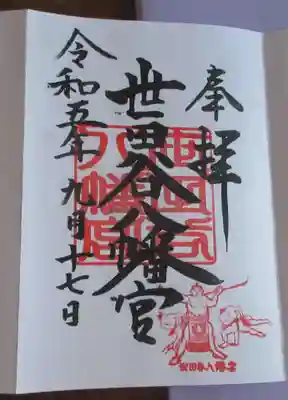 奉拝
世田谷八幡宮
世田谷
八幡宮
令和五年九月十七日
世田谷八幡宮